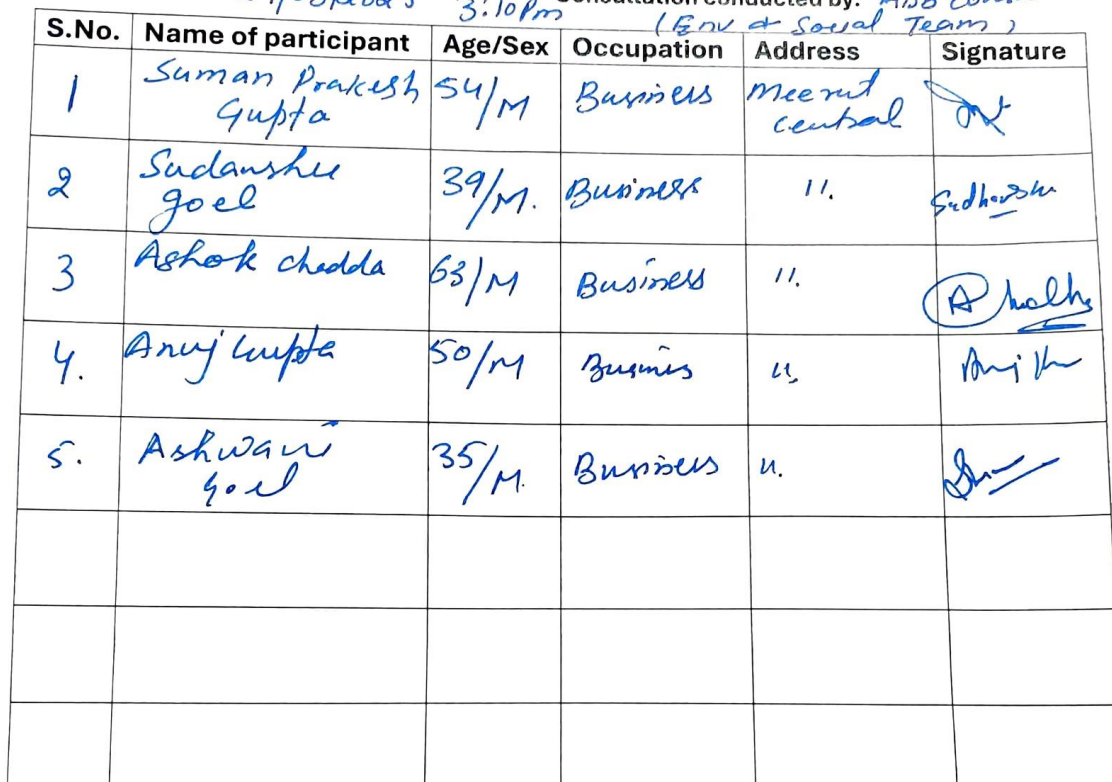 3:10 Pm conducted by:
(Env & Social Team)
S.No. Name of participant Age/Sex Occupation Address Signature
1 Suman Prakesh Gupta 54/M Business Meerut central
2 Sudanshu goel 39/M. Business 11. Sudhanshu
3 Ashok chadda 63/M Business 11.
4. Anuj Gupta 50/M Business u.
5. Ashwani Goel 35/M. Business u.